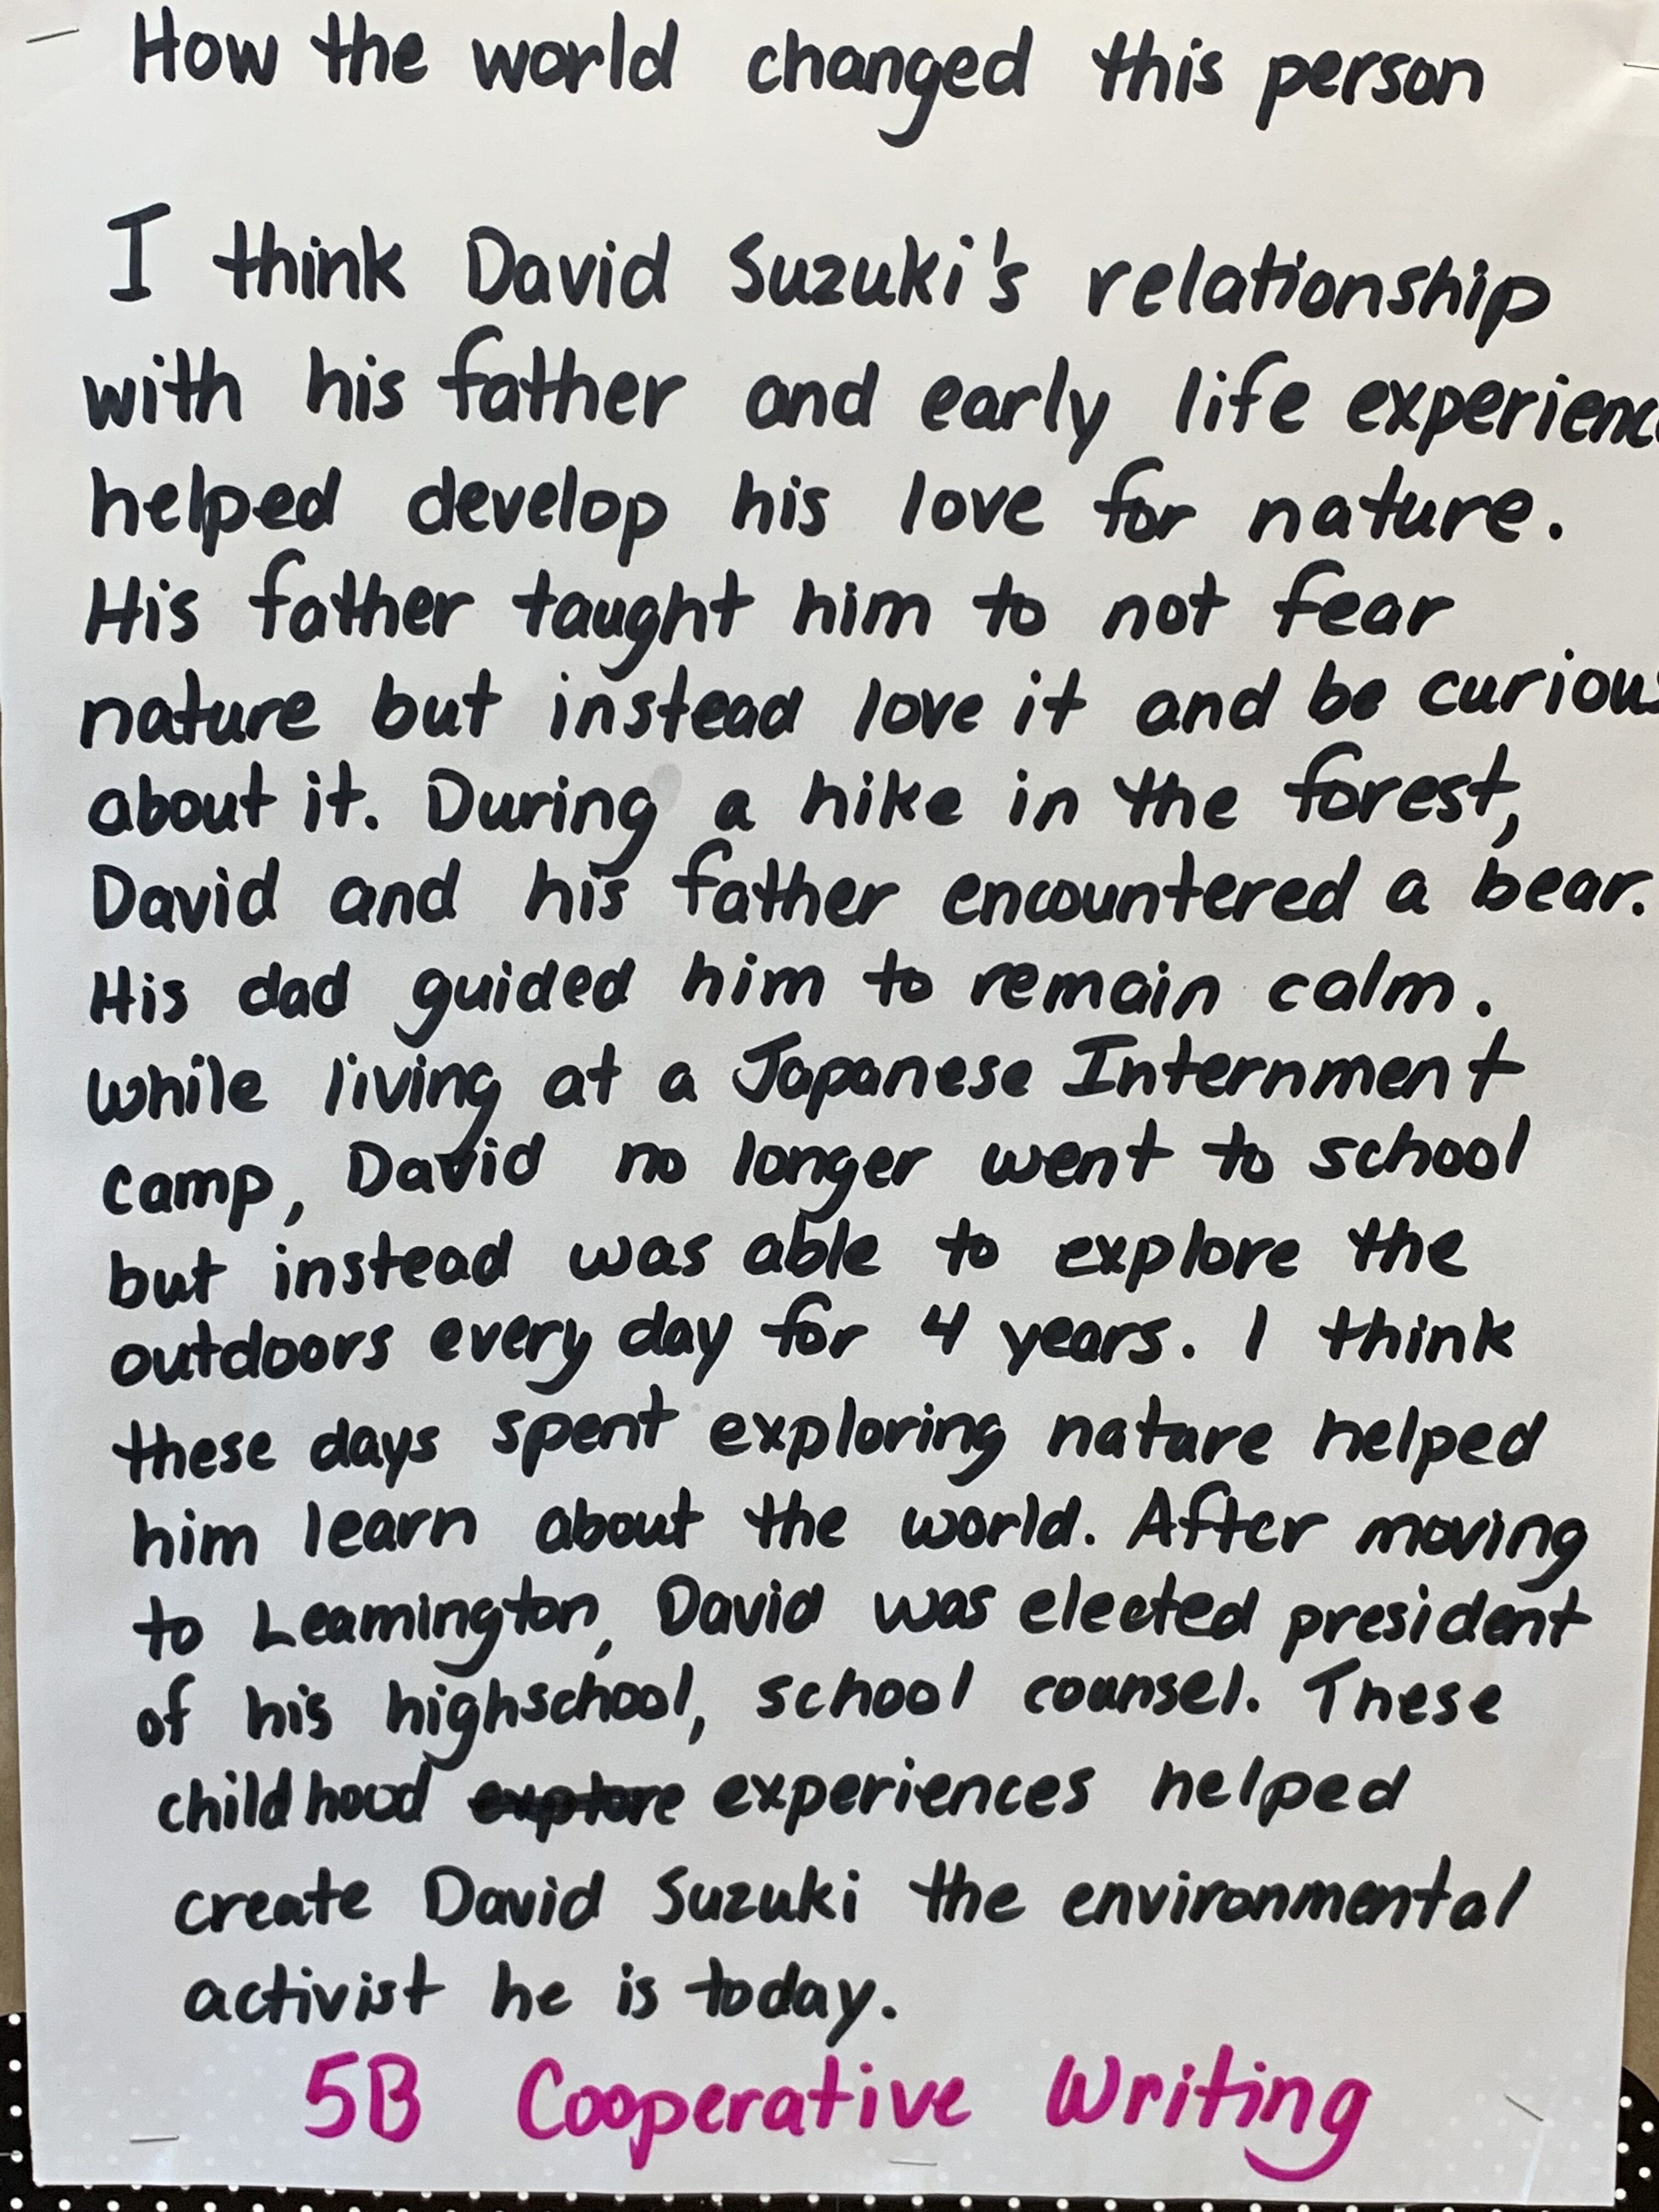 How the world changed this person
I think David Suzuki's relationship
with his father and early life experienc
helped develop his love for nature.
His father taught him to not fear
nature but instead love it and be curious
about it. During a hike in the forest,
David and his father encountered a bear.
His dad guided him to remain calm.
While living at a Japanese Internment
camp, David no longer went to school
but instead was able to explore the
outdoors every day for 4 years. I think
these days spent exploring nature helped
him learn about the world. After moving
to Leamington, David was elected president
of his highschool, school counsel. These
childhood explore experiences helped
create David Suzuki the environmental
activist he is today.
5B Cooperative Writing